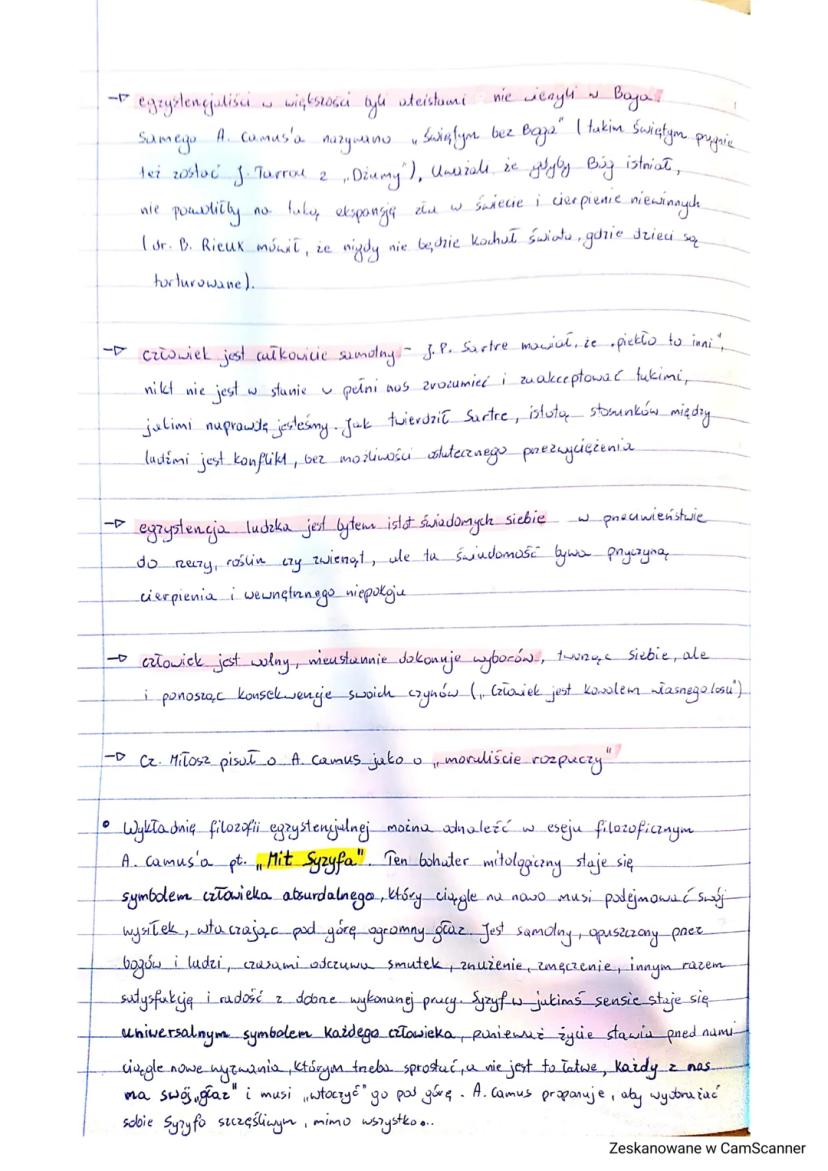 → egzystencjaliści w większości byli ateistami nie wierzyli w Boga.
Samego A. Camus'a nazywano „świętym bez Boga" (takim świętym pragnie
też zostać J. Tarrou z „Dżumy"), Uważali że gdyby Bóg istniał,
nie pozwoliłby na taką ekspansję zła w świecie i cierpienie niewinnych
(dr. B. Rieux mówił, że nigdy nie będzie kochał świata, gdzie dzieci są
torturowane).
→ człowiek jest całkowicie samotny - J.P. Sartre mawiał, że „piekło to inni",
nikt nie jest w stanie w pełni nas zrozumieć i zaakceptować takimi,
jakimi naprawdę jesteśmy. Jak twierdził Sartre, istotą stosunków między
ludźmi jest konflikt, bez możliwości ostatecznego przezwyciężenia
→ egzystencja ludzka jest bytem istot świadomych siebie w przeciwieństwie
do rzeczy, roślin czy zwierząt, ale ta świadomość bywa przyczyną
cierpienia i wewnętrznego niepokoju
→ człowiek jest wolny, nieustannie dokonuje wyborów, tworząc siebie, ale
i ponosząc konsekwencje swoich czynów („Człowiek jest kowalem własnego losu")
→ Cz. Miłosz pisał o A. Camus jako o „moraliście rozpaczy"
• Wykładnię filozofii egzystencjalnej można odnaleźć w eseju filozoficznym
A. Camus'a pt. „Mit Syzyfa". Ten bohater mitologiczny staje się
symbolem człowieka absurdalnego, który ciągle na nowo musi podejmować swój
wysiłek, wtaczając pod górę ogromny głaz. Jest samotny, opuszczony przez
bogów i ludzi, czasami odczuwa smutek, znużenie, zmęczenie, innym razem
satysfakcję i radość z dobrze wykonanej pracy. Syzyf w jakimś sensie staje się
uniwersalnym symbolem każdego człowieka, ponieważ życie stawia przed nami
ciągle nowe wyzwania, którym trzeba sprostać, a nie jest to łatwe, każdy z nas
ma swój „głaz" i musi „wtoczyć" go pod górę. A. Camus proponuje, aby wyobrażać
sobie Syzyfa szczęśliwym, mimo wszystko...
Zeskanowane w CamScanner